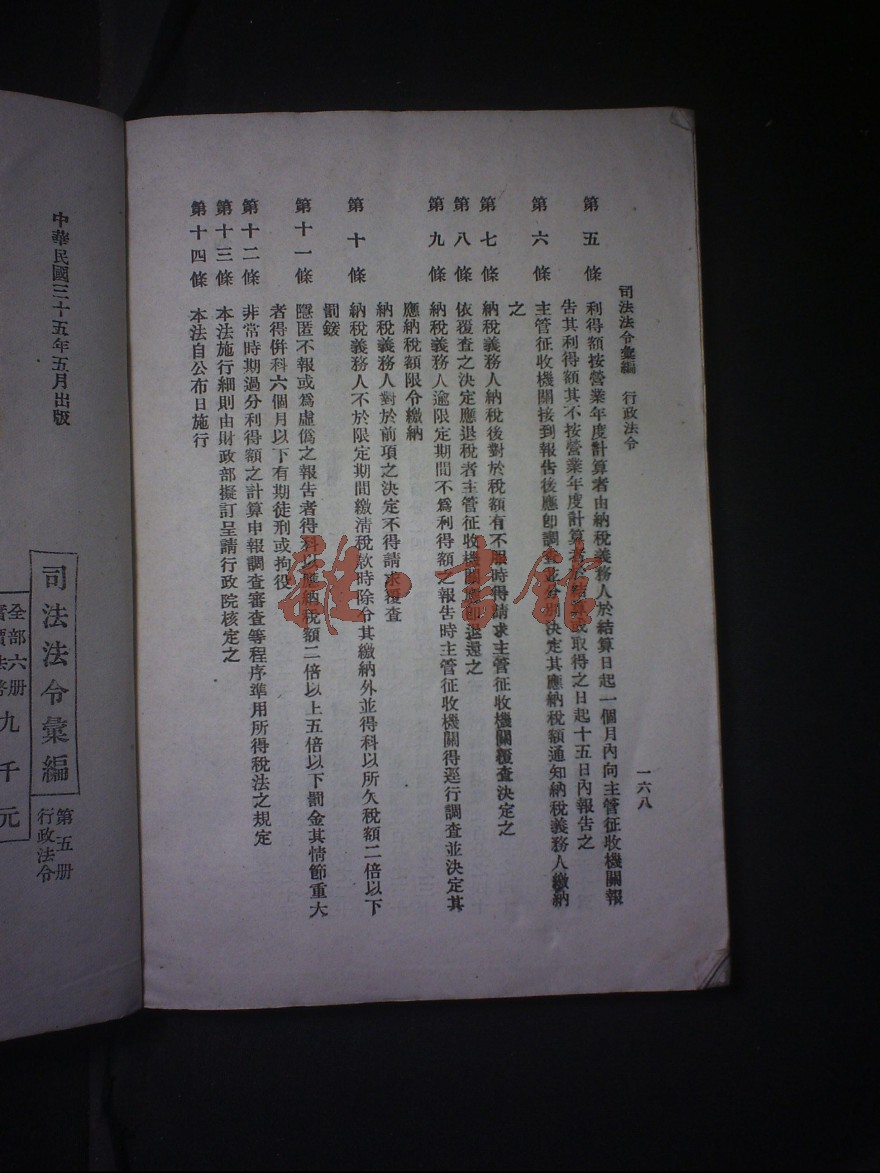 司法法令彙編　行政法令
一六八
第五條　利得額按營業年度計算者由納稅義務人於結算日起一個月內向主管征收機關報
告其利得額其不按營業年度計算者於結算或取得之日起十五日內報告之
第六條　主管征收機關接到報告後應卽調查並分別決定其應納稅額通知納稅義務人繳納
之
第七條　納稅義務人納稅後對於稅額有不服時得請求主管征收機關覆查決定之
第八條　依覆查之決定應退稅者主管征收機關應卽退還之
第九條　納稅義務人逾限定期間不爲利得額之報告時主管征收機關得逕行調查並決定其
應納稅額限令繳納
納稅義務人對於前項之決定不得請求覆查
第十條　納稅義務人不於限定期間繳清稅款時除令其繳納外並得科以所欠稅額二倍以下
罰鍰
第十一條　隱匿不報或爲虛僞之報告者得科以應納稅額二倍以上五倍以下罰金其情節重大
者得併科六個月以下有期徒刑或拘役
第十二條　非常時期過分利得額之計算申報調查審查等程序準用所得稅法之規定
第十三條　本法施行細則由財政部擬訂呈請行政院核定之
第十四條　本法自公布日施行
雜·書館
中華民國三十五年五月出版
司法法令彙編
第五册
行政法令
全部六册
實價法幣
九千元